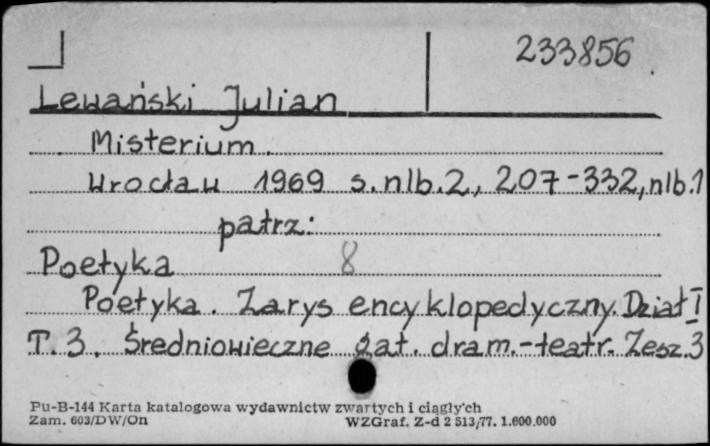 233856
Lewański Julian
Misterium.
Wrocław 1969 s. nlb. 2, 207-332, nlb. 1
patrz:
Poetyka 8
Poetyka. Zarys encyklopedyczny. Dział I
T. 3. Średniowieczne gat. dram.-teatr. Zesz. 3
Pu-B-144 Karta katalogowa wydawnictw zwartych i ciągłych
Zam. 603/DW/On WZGraf. Z-d 2 513/77. 1.600.000